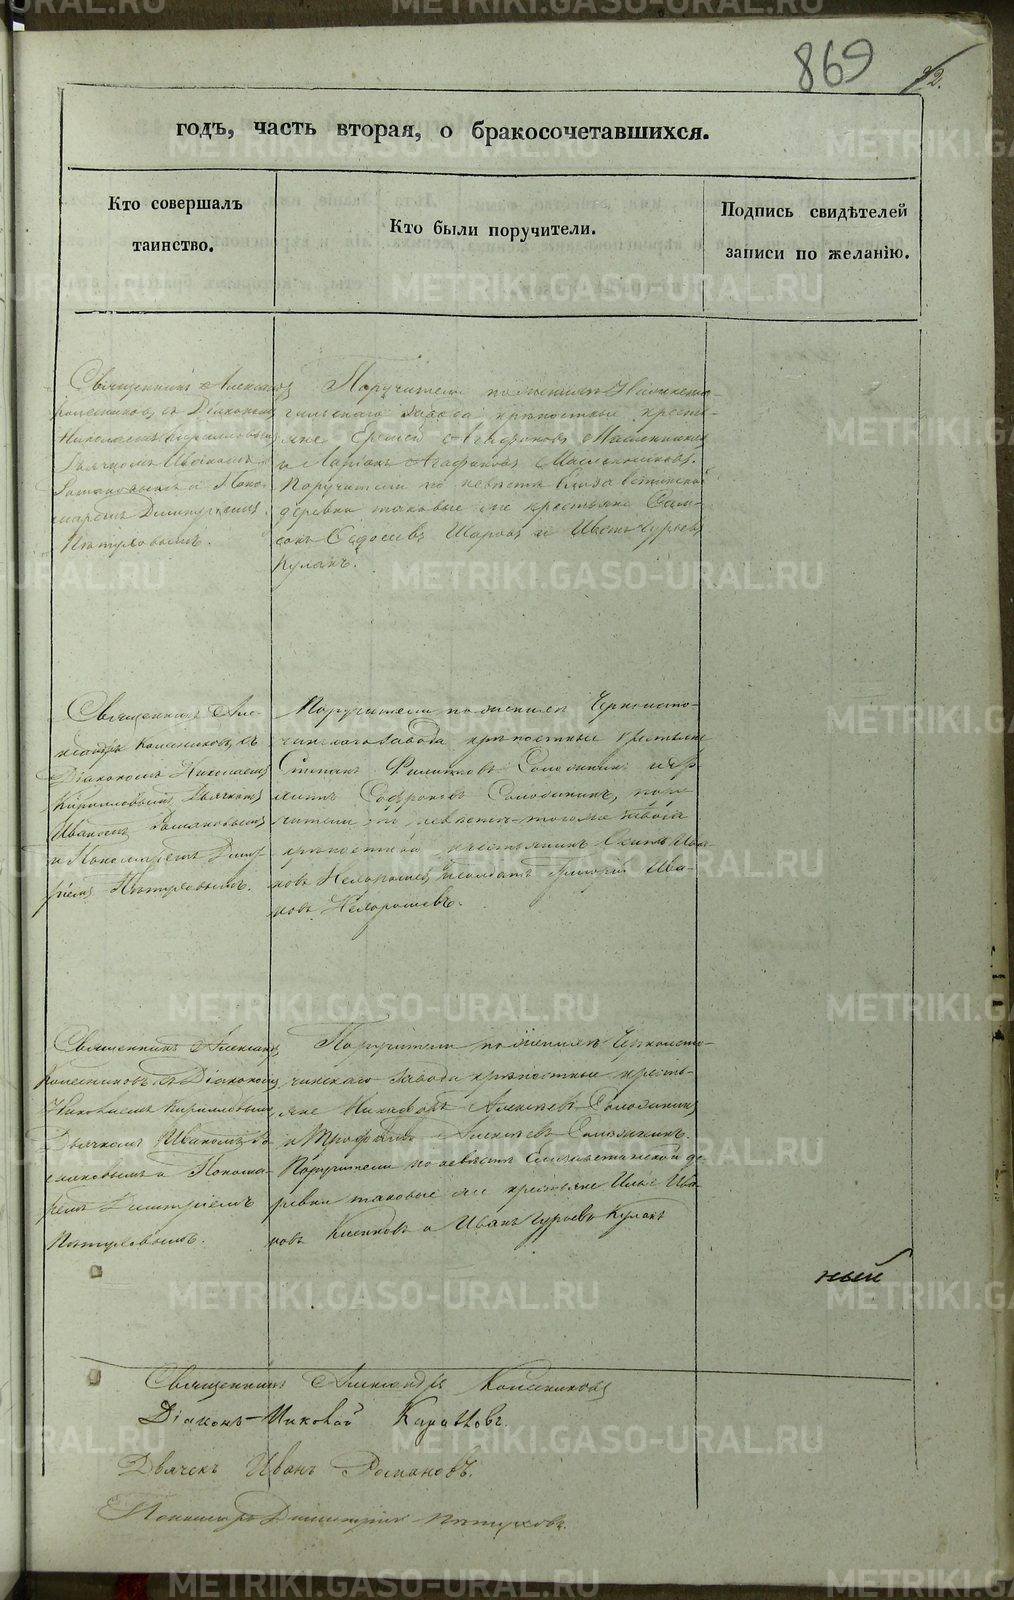 869
годъ, часть вторая, о бракосочетавшихся.
Кто совершалъ
таинство.
Кто были поручители.
Подпись свидѣтелей
записи по желанію.
Священникъ Александръ
Колесниковъ, съ Діакономъ
Николаемъ Кирилловымъ
Дьячкомъ Иваномъ
Романовымъ и Поно-
маремъ Димитріемъ
Пѣтуховымъ.
Поручители по женихѣ Нижнета-
гильскаго завода крѣпостные кресть-
яне Еремей Агафоновъ Масленниковъ
и Ларіонъ Агафоновъ Масленниковъ.
Поручители по невѣстѣ Елизаветинской
деревни таковые же крестьяне Сам-
сонъ Ѳедосеевъ Шаровъ и Гурьевъ
Кулакъ.
Священникъ Але-
ксандръ Колесниковъ, съ
Діакономъ Николаемъ
Кирилловымъ, Дьячкомъ
Иваномъ Романовымъ
и Пономаремъ Дими-
ріемъ Пѣтуховымъ.
Поручители по женихѣ Черноисто-
чинскаго завода крѣпостные крестьяне
Степанъ Филиповъ Солодкинъ и
Софроновъ Солодкинъ, пору-
чители по невѣстѣ тогоже завода
крѣпостной крестьянинъ Ива-
новъ Нехорошевъ и солдатъ Григорій Ива-
новъ Нехорошевъ.
Священникъ Александръ
Колесниковъ съ Діакономъ
Николаемъ Кирилловымъ,
Дьячкомъ Иваномъ Ро-
мановымъ и Понома-
ремъ Димитріемъ
Пѣтуховымъ.
Поручители по женихѣ Черноисто-
чинскаго завода крѣпостные кресть-
яне Никифоръ Алексѣевъ Солодкинъ
и Трофимъ Алексѣевъ Солодкинъ.
Поручители по невѣстѣ Елизаветинской де-
ревни таковые же крестьяне Илья Ива-
новъ и Иванъ Гурьевъ Кулакъ
ный
Священникъ Александръ Колесниковъ
Діаконъ Николай Кирилловъ.
Дьячекъ Иванъ Романовъ.
Пономарь Димитрій Пѣтуховъ.
METRIKI.GASO-URAL.RU